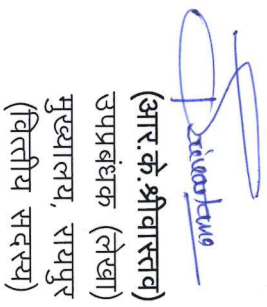 Srivastava
(आर.के.श्रीवास्तव)
उपप्रबंधक (लेखा)
मुख्यालय, रायपुर
(वित्तीय सदस्य)